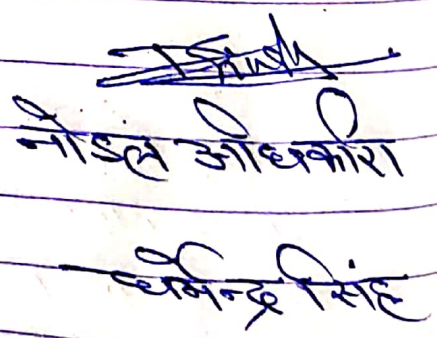 नोडल अधिकारी
धर्मेन्द्र सिंह